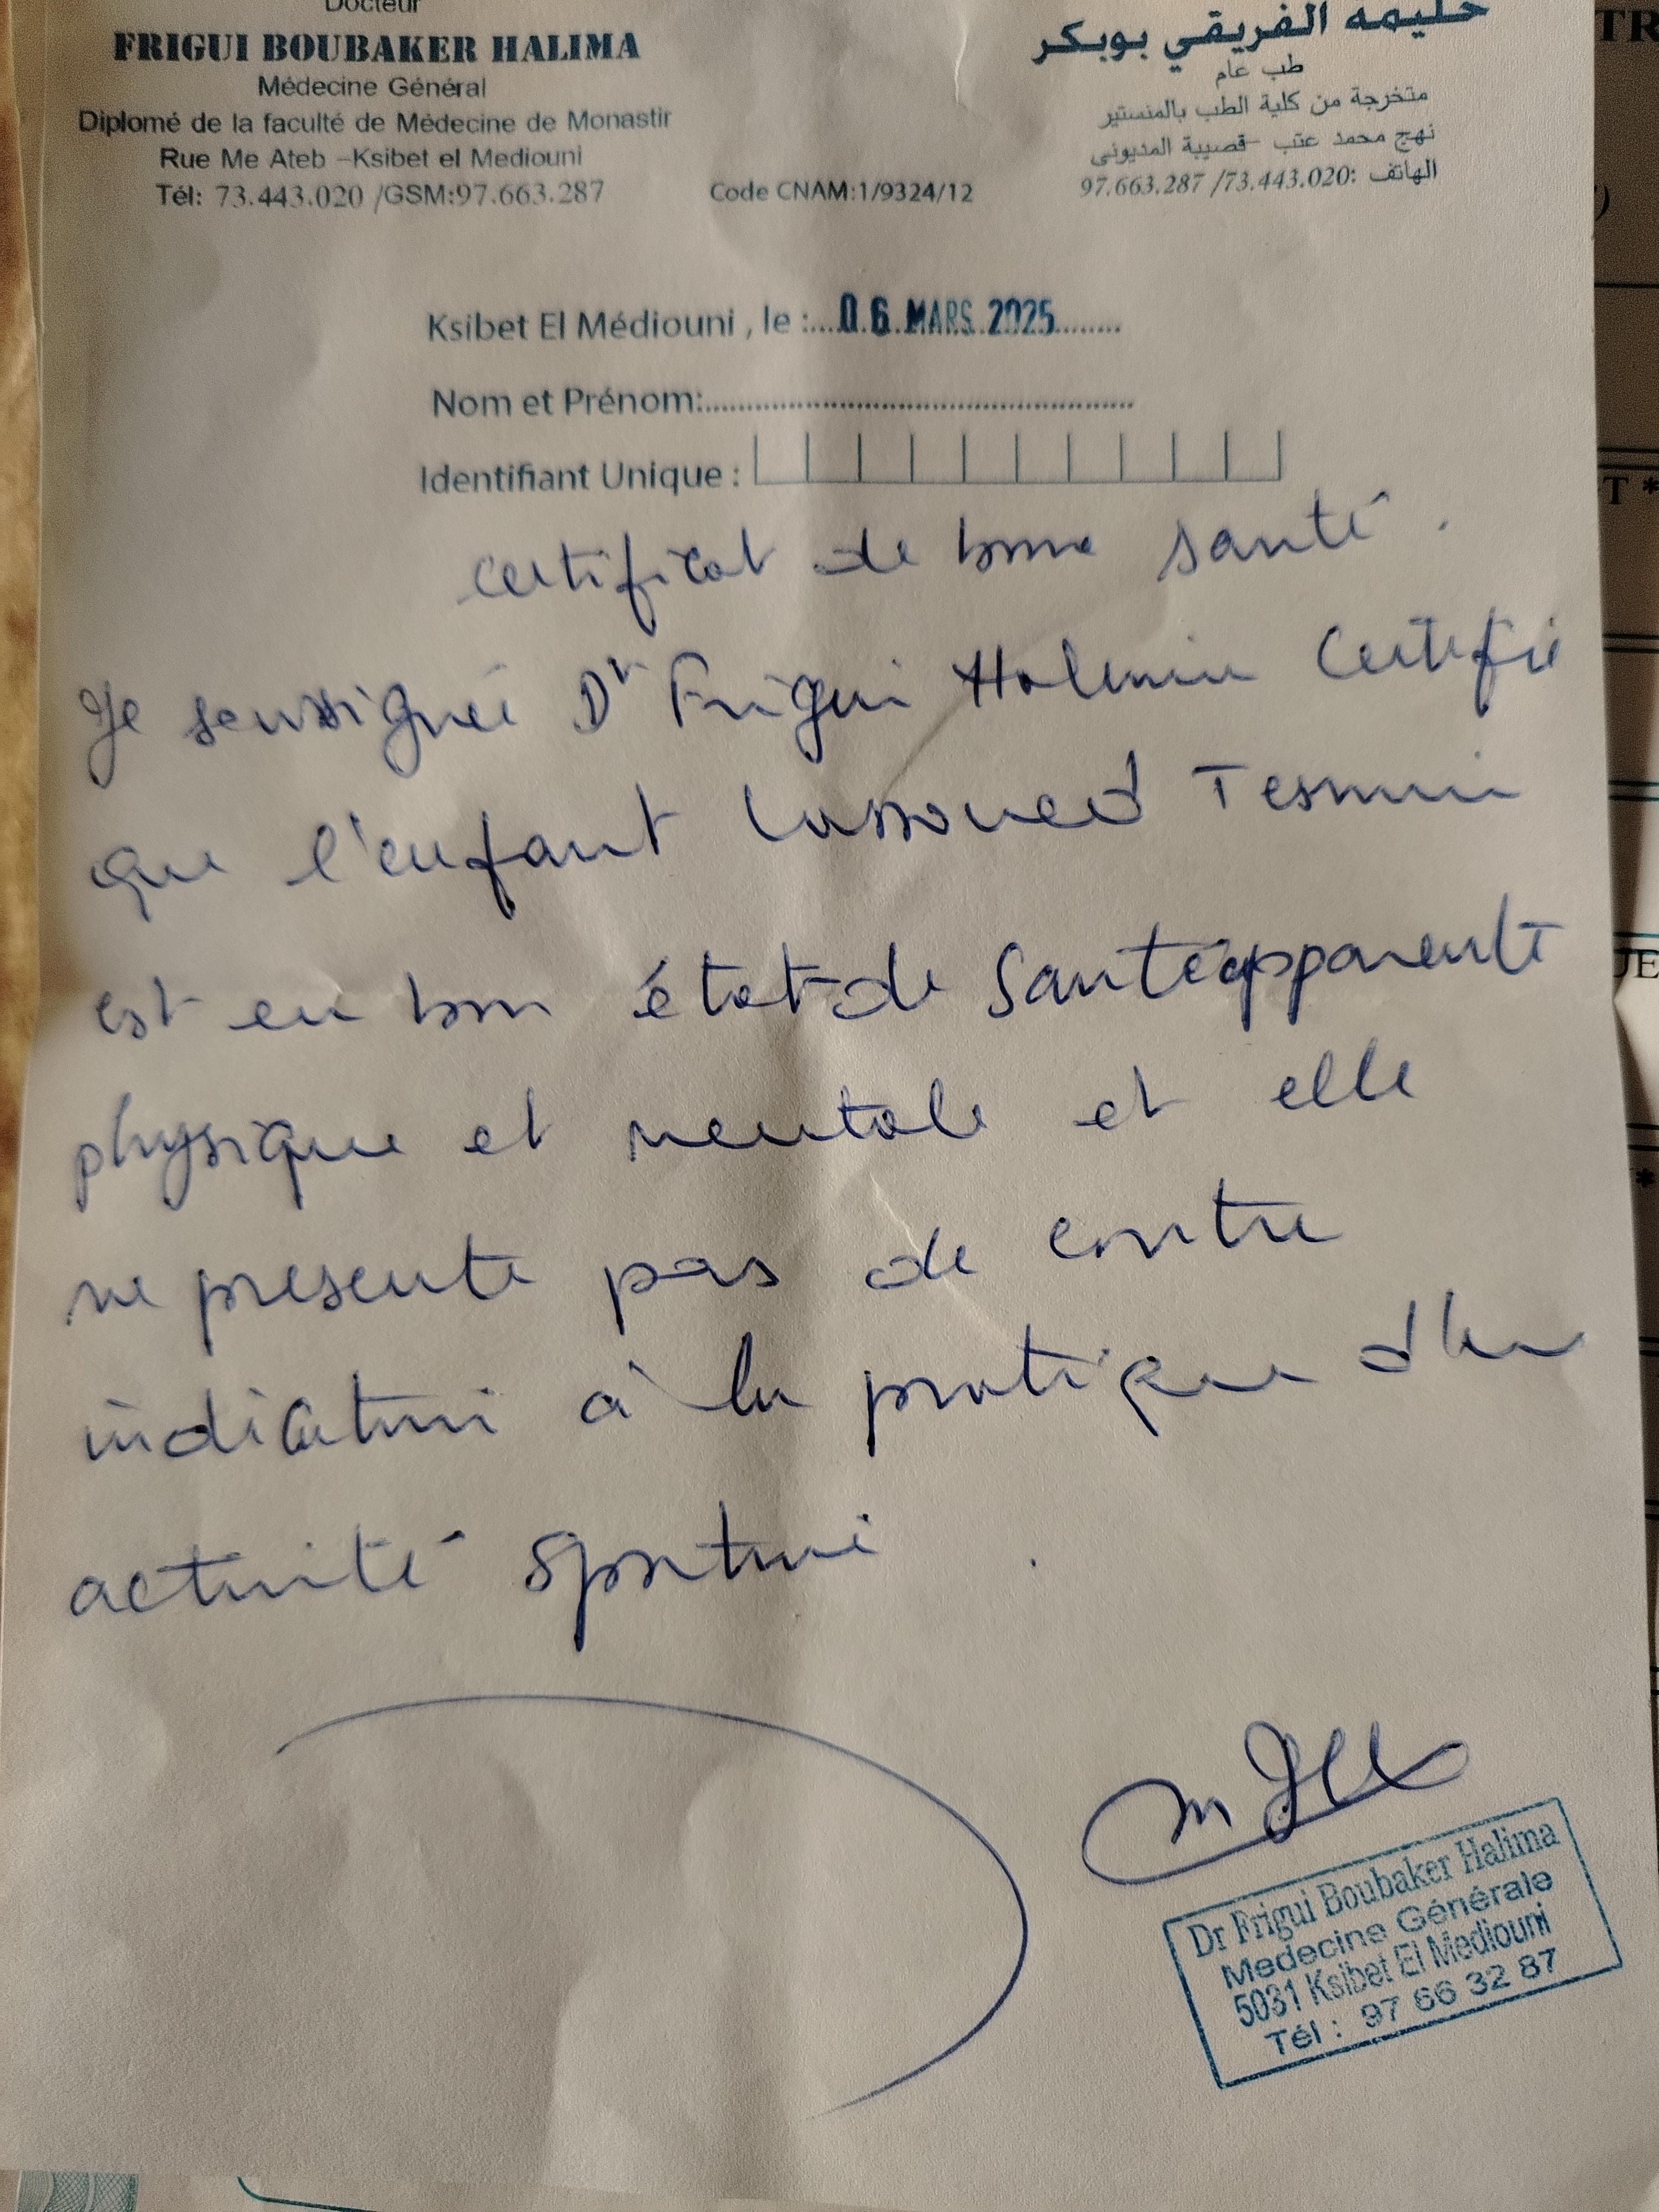 Docteur
FRIGUI BOUBAKER HALIMA
Médecine Général
Diplomé de la faculté de Médecine de Monastir
Rue Me Ateb –Ksibet el Mediouni
Tél: 73.443.020 /GSM:97.663.287
Code CNAM:1/9324/12
حليمه الفريقي بوبكر
طب عام
متخرجة من كلية الطب بالمنستير
نهج محمد عتب -قصيبة المديوني
الهاتف :97.663.287 /73.443.020
Ksibet El Médiouni , le :...06 MARS 2025........
Nom et Prénom:
Identifiant Unique :
certificat de bonne santé.
Je soussignée Dr Frigui Halima Certifie
que l'enfant Lassoued
est en bon état de Santé apparente
physique et mentale et elle
ne presente pas de contre
indication à la pratique d'un
activité sportive .
Dr Frigui Boubaker Halima
Medecine Générale
5031 Ksibet El Mediouni
Tél : 97 66 32 87
TR
T *
UE
*